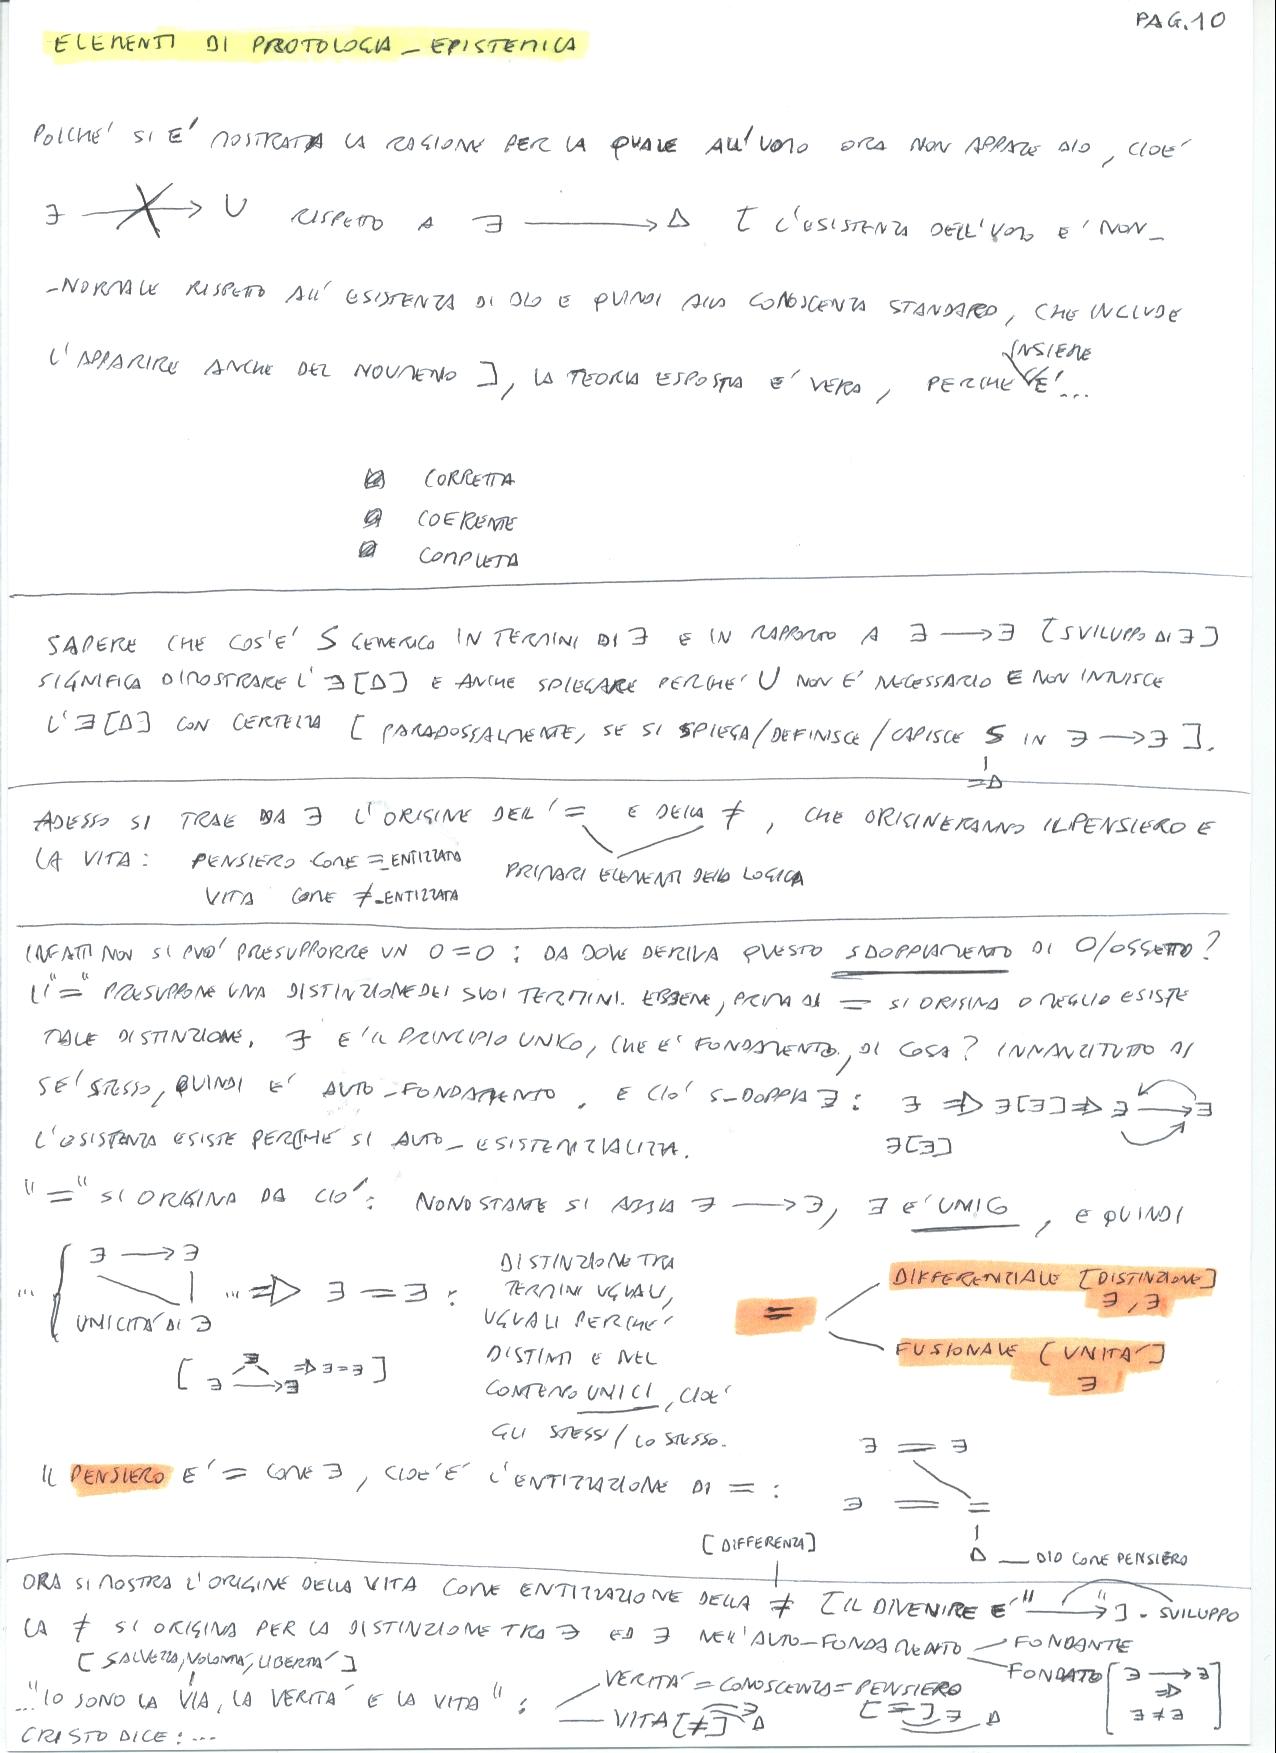 PAG.10
ELEMENTI DI PROTOLOGIA_EPISTEMICA
POICHE' SI E' MOSTRATA LA RAGIONE PER LA QUALE ALL'UOMO ORA NON APPARE DIO, CIOE'
∃ → U RISPETTO A ∃ → Δ [ L'ESISTENZA DELL'UOMO E' NON_
_NORMALE RISPETTO ALL'ESISTENZA DI DIO E QUINDI ALLA CONOSCENZA STANDARD, CHE INCLUDE
L'APPARIRE ANCHE DEL NOUMENO ], LA TEORIA ESPOSTA E' VERA, PERCHE' E'...
INSIEME
CORRETTA
COERENTE
COMPLETA
SAPERE CHE COS'E' S GENERICO IN TERMINI DI ∃ E IN RAPPORTO A ∃ → ∃ [SVILUPPO DI ∃]
SIGNIFICA DIMOSTRARE L'∃[Δ] E ANCHE SPIEGARE PERCHE' U NON E' NECESSARIO E NON INTUISCE
L'∃[Δ] CON CERTEZZA [ PARADOSSALMENTE, SE SI SPIEGA/DEFINISCE/CAPISCE S IN ∃ → ∃ ].
=Δ
ADESSO SI TRAE DA ∃ L'ORIGINE DELL'= E DELLA ≠, CHE ORIGINERANNO IL PENSIERO E
LA VITA: PENSIERO COME =_ENTIZZATO
VITA COME ≠_ENTIZZATA
PRIMARI ELEMENTI DELLA LOGICA
INFATTI NON SI PUO' PRESUPPORRE UN O=O: DA DOVE DERIVA QUESTO SDOPPIAMENTO DI O/OGGETTO?
L'"=" PRESUPPONE UNA DISTINZIONE DEI SUOI TERMINI. EBBENE, PRIMA DI = SI ORIGINA O MEGLIO ESISTE
TALE DISTINZIONE. ∃ E' IL PRINCIPIO UNICO, CHE E' FONDAMENTO, DI COSA? INNANZITUTTO DI
SE' STESSO, QUINDI E' AUTO_FONDAMENTO, E CIO' S_DOPPIA ∃: ∃ ⇒ ∃[∃] ⇒ ∃ → ∃
L'ESISTENZA ESISTE PERCHE' SI AUTO_ESISTENZIALIZZA. ∃[∃]
"=" SI ORIGINA DA CIO': NONOSTANTE SI ABBIA ∃ → ∃, ∃ E' UNICO, E QUINDI
... { ∃ → ∃ UNICITA' DI ∃ ... ⇒ ∃ = ∃:
[ ∃ ∃ → ∃ ⇒ ∃=∃ ]
DISTINZIONE TRA
TERMINI UGUALI,
UGUALI PERCHE'
DISTINTI E NEL
CONTEMPO UNICI, CIOE'
GLI STESSI/LO STESSO.
=
DIFFERENZIALE [DISTINZIONE]
∃, ∃
FUSIONALE [UNITA']
∃
IL PENSIERO E' = COME ∃, CIOE' E' L'ENTIZZAZIONE DI =:
∃ = ∃
∃ = =
Δ _ DIO COME PENSIERO
[DIFFERENZA]
ORA SI MOSTRA L'ORIGINE DELLA VITA COME ENTIZZAZIONE DELLA ≠ [IL DIVENIRE E' "→"]. SVILUPPO
LA ≠ SI ORIGINA PER LA DISTINZIONE TRA ∃ ED ∃ NELL'AUTO-FONDAMENTO FONDANTE
FONDATO [ ∃ → ∃ ⇒ ∃ ≠ ∃ ]
[SALVEZZA, VOLONTA', LIBERTA']
..."IO SONO LA VIA, LA VERITA' E LA VITA":
VERITA' = CONOSCENZA = PENSIERO
[=] ∃ Δ
VITA [≠] ∃ Δ
CRISTO DICE:...